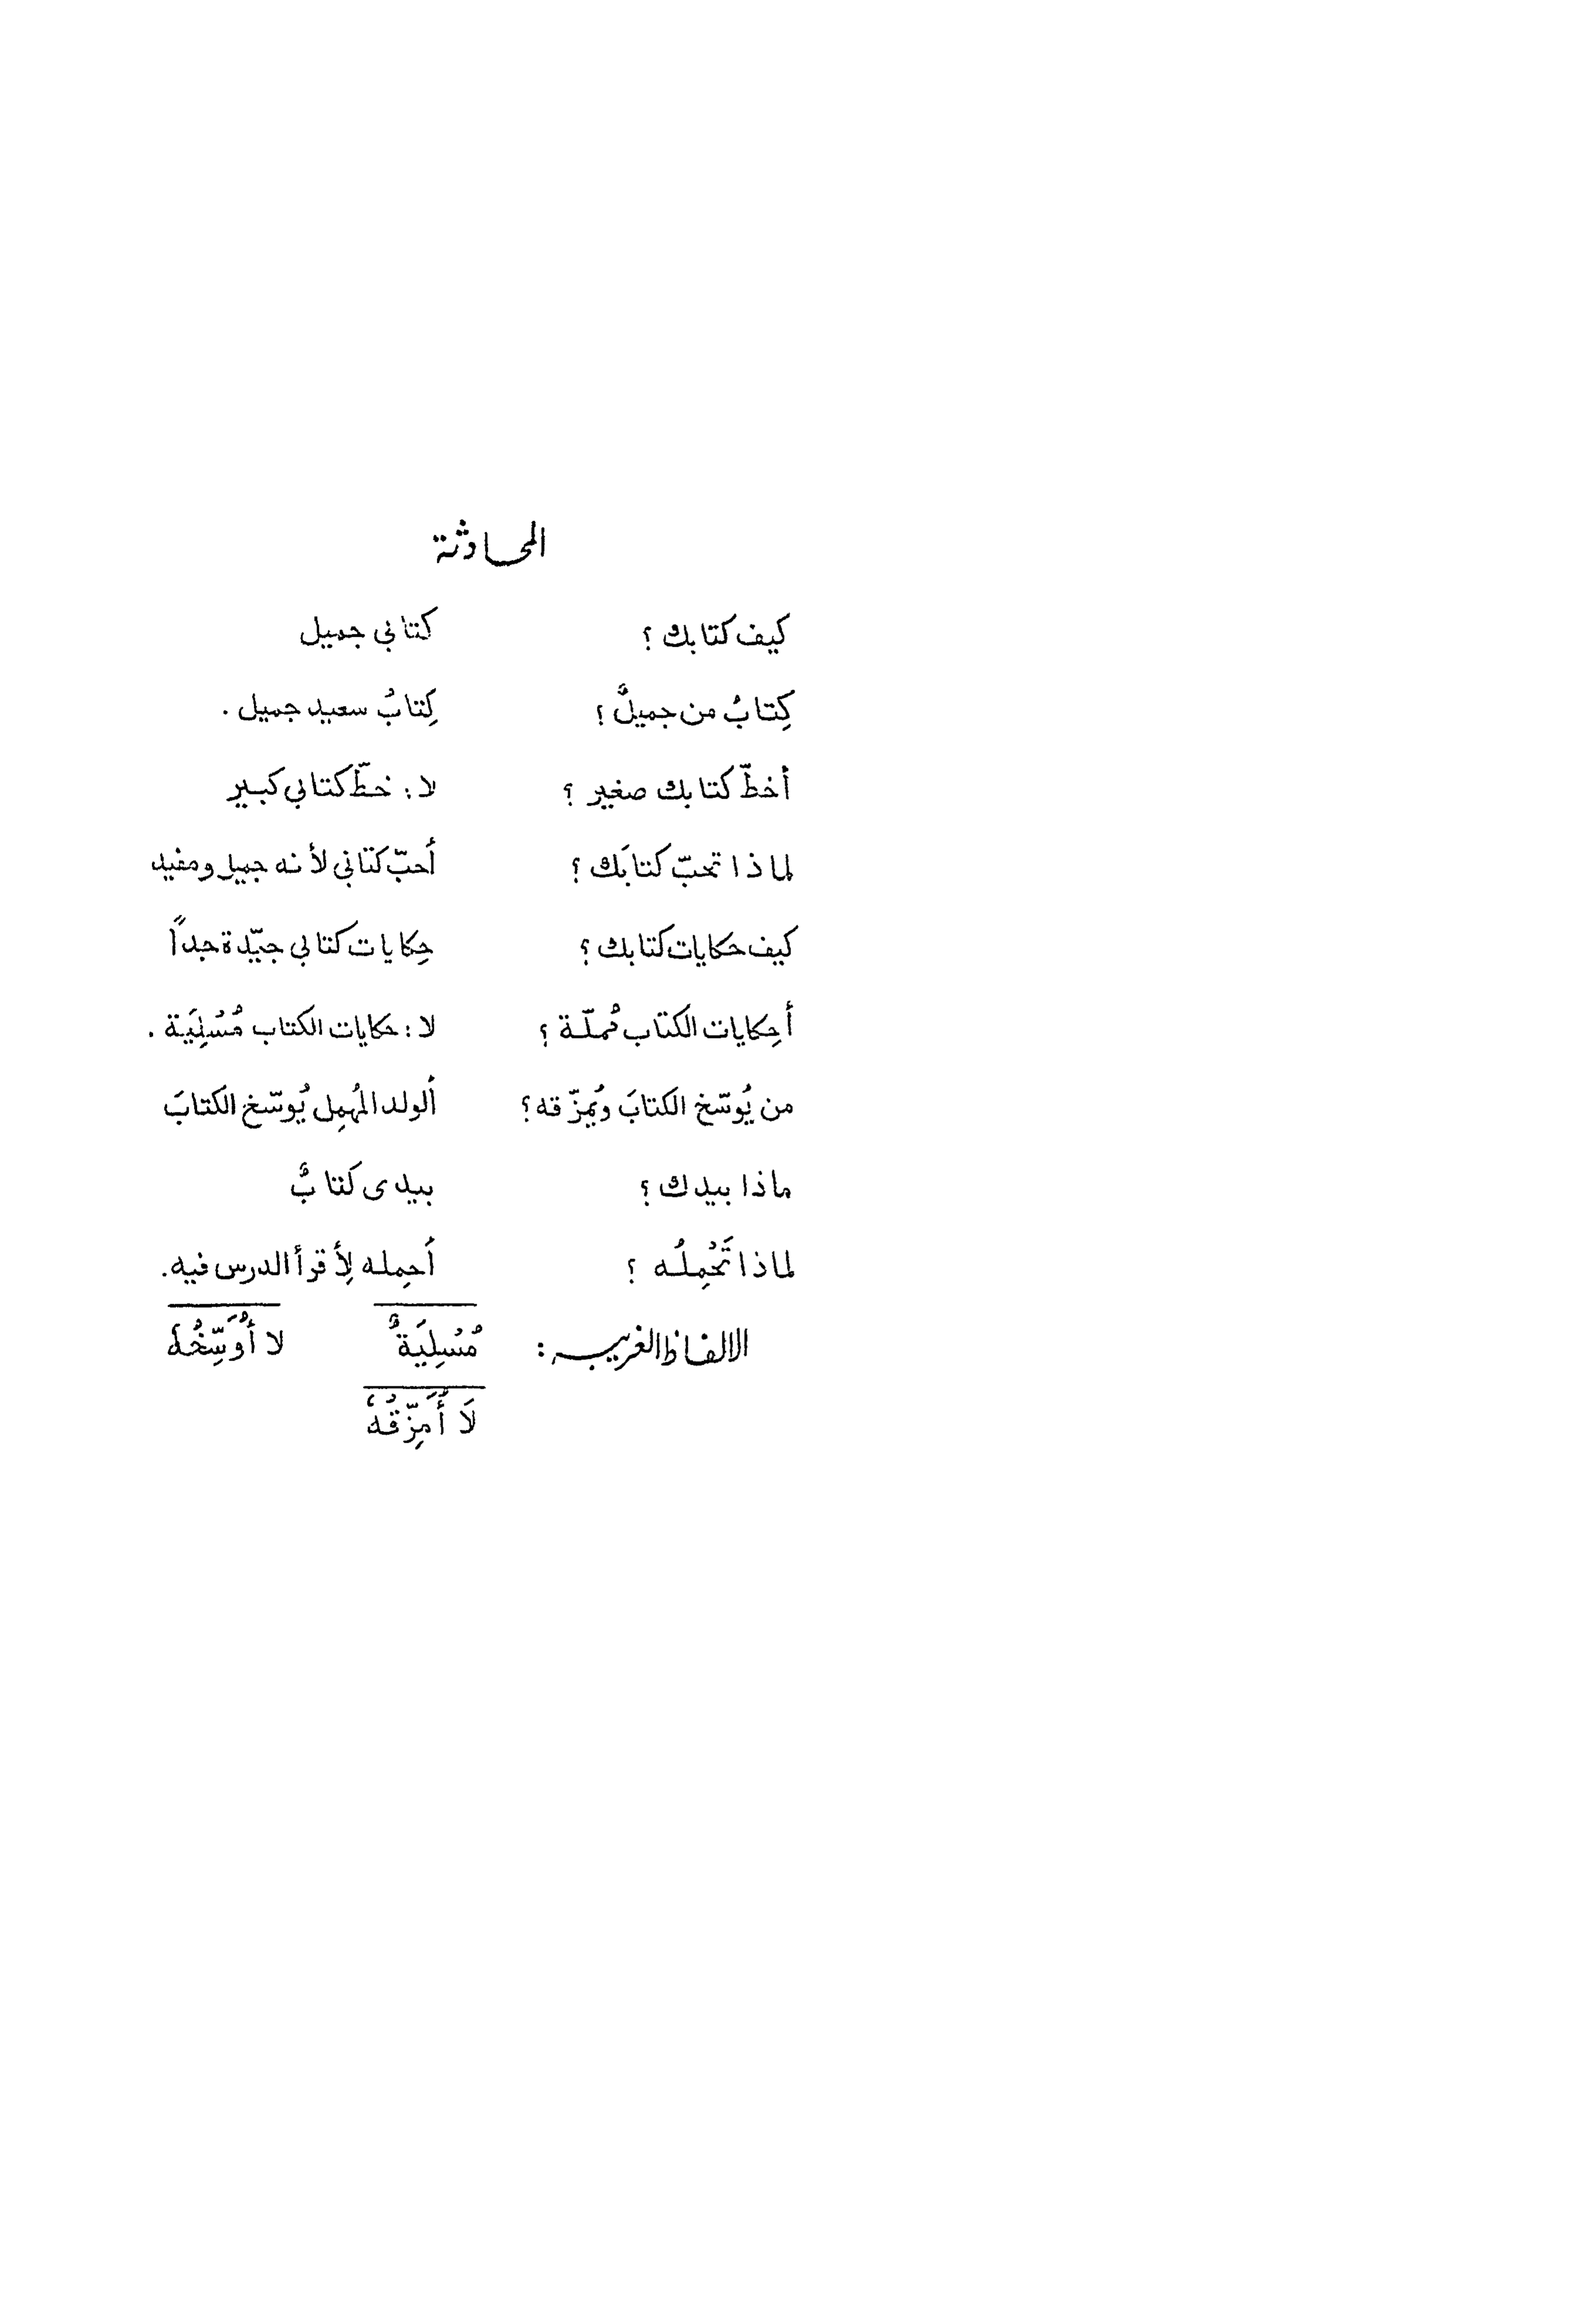 المحادثة
كيف كتابك ؟ كتابي جميل
كِتابُ من جميلٌ ؟ كِتابُ سعيد جميل .
أخطّ كتابك صغير ؟ لا : خطّ كتابي كبير
لماذا تحبّ كتابَك ؟ أحبّ كتابي لأنه جميل ومفيد
كيف حكايات كتابك ؟ حِكايات كتابي جيّدة جداً
أحِكايات الكتاب مُملّة ؟ لا : حكايات الكتاب مُسْلِيَة .
من يُوسّخ الكتابَ ويُمزّقه ؟ ألولد المُهمِل يُوسّخ الكتابَ
ماذا بيدك ؟ بيدى كتابٌ
لماذا تَحْمِلُه ؟ أحمِله لِأقرأ الدرس فيه .
الالفاظ الغريبه : مُسْلِيَةٌ لا أُوَسِّخُهُ
لَا أُمَزِّقُهُ